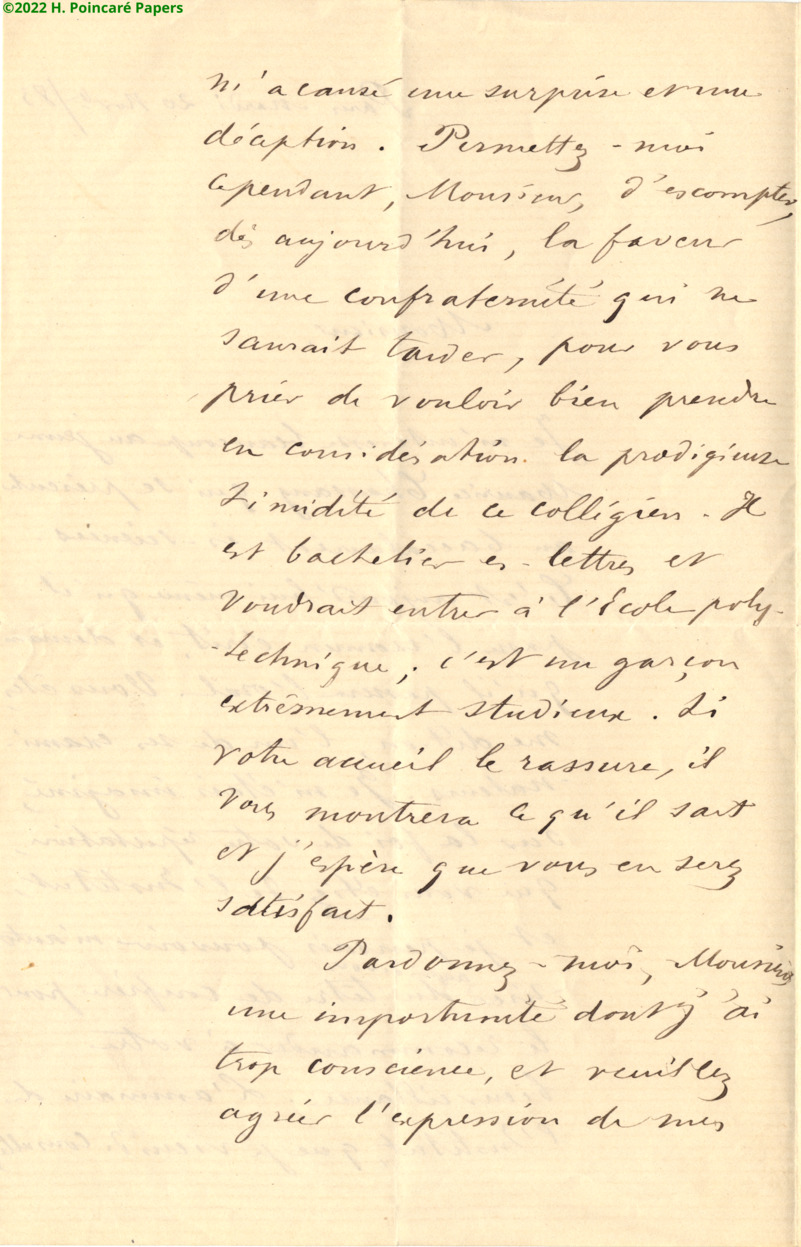 ©2022 H. Poincaré Papers
m'a causé une surprise et une
déception. Permettez-moi
cependant, Monsieur, d'escompter,
dès aujourd'hui, la faveur
d'une confraternité qui ne
saurait tarder, pour vous
prier de vouloir bien prendre
en considération la prodigieuse
timidité de ce collégien. Il
est bachelier es-lettres et
voudrait entrer à l'École poly-
-technique ; c'est un garçon
extrêmement studieux. Si
votre accueil le rassure, il
vous montrera ce qu'il sait
et j'espère que vous en serez
satisfait.
Pardonnez-moi, Monsieur,
une importunité dont j'ai
trop conscience, et veuillez
agréer l'expression de mes